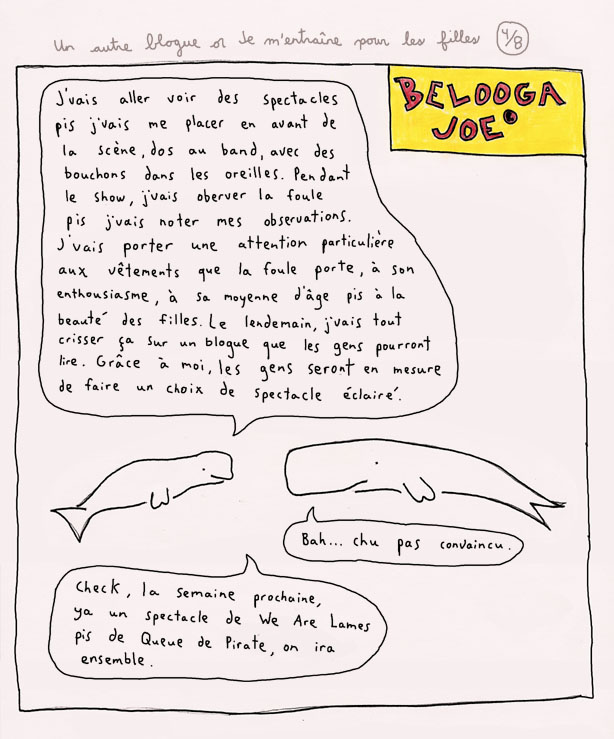 Un autre blogue or Je m'entraîne pour les filles 4/8
BELOOGA
JOE
J'vais aller voir des spectacles
pis j'vais me placer en avant de
la scène, dos au band, avec des
bouchons dans les oreilles. Pendant
le show, j'vais oberver la foule
pis j'vais noter mes observations.
J'vais porter une attention particulière
aux vêtements que la foule porte, à son
enthousiasme, à sa moyenne d'âge pis à la
beauté des filles. Le lendemain, j'vais tout
crisser ça sur un blogue que les gens pourront
lire. Grâce à moi, les gens seront en mesure
de faire un choix de spectacle éclairé.
Bah... chu pas convaincu.
Check, la semaine prochaine,
ya un spectacle de We Are Lames
pis de Queue de Pirate, on ira
ensemble.